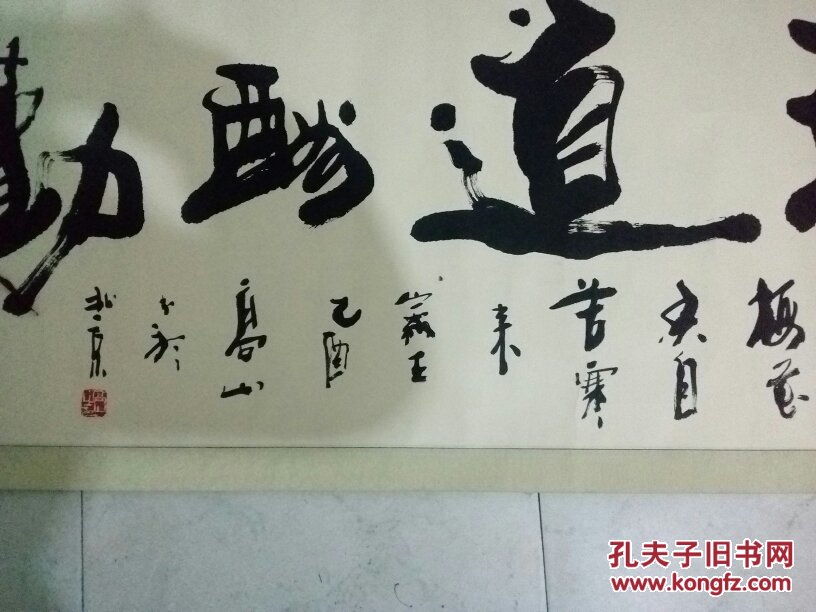 道酬勤
梅花
香自
苦寒
来
乙酉
高山
书於
北京
孔夫子旧书网
www.kongfz.com